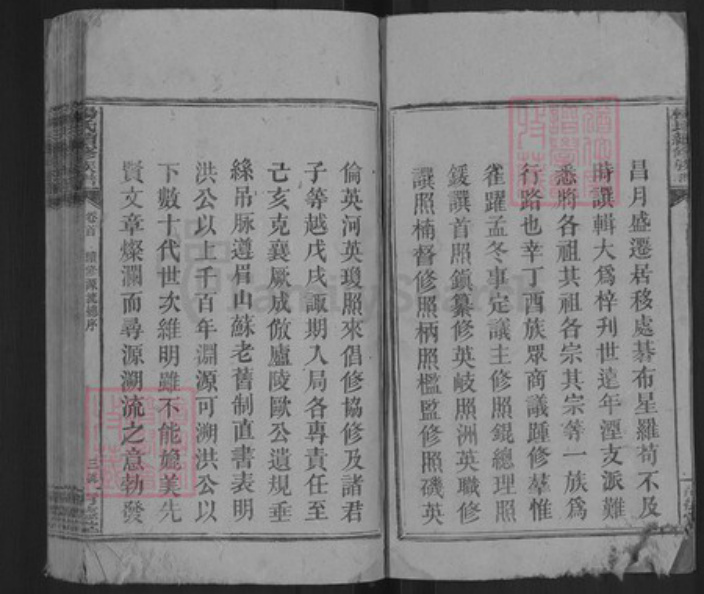 昌月盛遷居移處碁布星羅苟不及
時譔輯大爲梓刊世遠年湮支派難
悉將各祖其祖各宗其宗等一族爲
行路也幸丁酉族眾商議踵修羣惟
雀躍孟冬事定議主修照錕總理照
鍰譔首照鎮纂修英岐照洲英職修
譔照楠督修照柄照檻監修照磯英
倫英河英瓊照來倡修協修及諸君
子等越戊戌諏期入局各專責任至
己亥克襄厥成倣廬陵歐公遺規垂
絲吊脉遵眉山蘇老舊制直書表明
洪公以上千百年淵源可溯洪公以
下數十代世次維明雖不能媲美先
賢文章燦瀾而尋源溯流之意勃發
卷首 續修源流總序